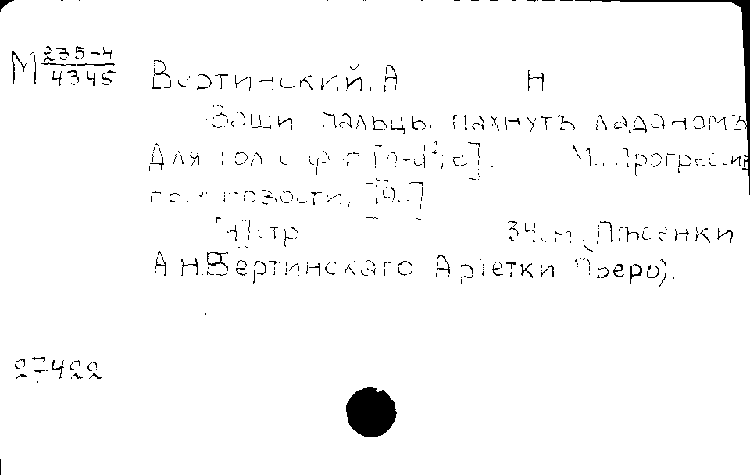 М 235-4
4345
Вертинский, А Н
Ваши пальцы пахнутъ ладаномъ
Для гол с ф-п [a-d²; e]. М., Прогрессив
новости, [б.г.]
[4] стр 34 см (Пѣсенки
А Н. Вертинскаго Арiетки Пьеро).
27422